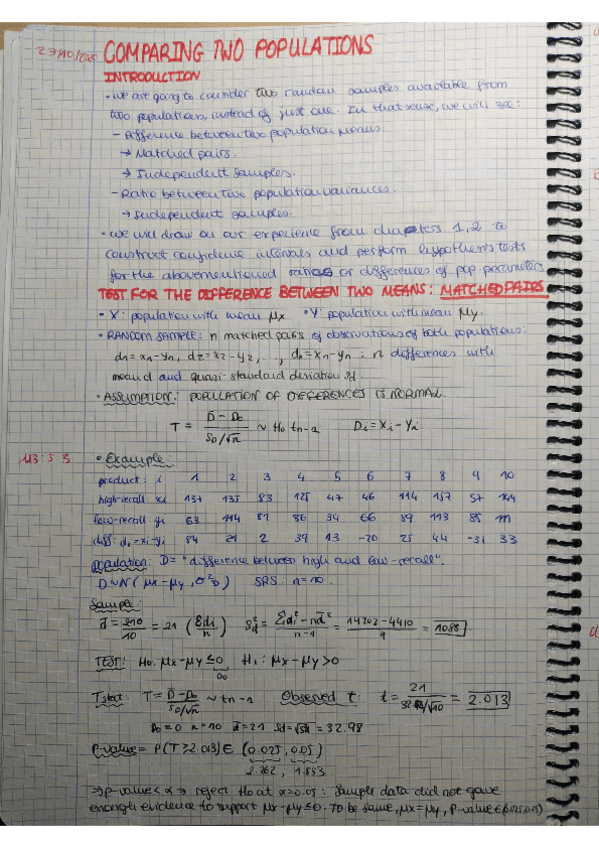 23/10/2025 COMPARING TWO POPULATIONS
INTRODUCTION
• we are going to consider two random samples available from
two populations, instead of just one. In that sense, we will see:
- Difference between two population means.
→ Matched pairs.
→ Independent samples.
- Ratio between two population variances.
→ Independent samples.
• we will draw on our experience from chapters 1, 2 to
construct confidence intervals and perform hypothesis tests
for the abovementioned ratios or differences of pop. parameters.
TEST FOR THE DIFFERENCE BETWEEN TWO MEANS: MATCHED PAIRS
• X: population with mean μx • Y: population with mean μy.
• RANDOM SAMPLE: n matched pairs of observations of both populations:
d2 = x2 - y2, ..., dn = xn - yn : n differences with
mean d and quasi-standard deviation sd
• ASSUMPTION: POPULATION OF DIFFERENCES IS NORMAL.
T = D̄ - D0 / sD/√n ~ H0 tn-1 Di = Xi - Yi
• Example:
product: i 1 2 3 4 5 6 7 8 9 10
high-recall xi 137 135 83 125 47 46 114 157 57 144
low-recall yi 53 114 81 86 34 66 89 113 88 111
diff: di = xi - yi 84 21 2 39 13 -20 25 44 -31 33
population: D = "difference between high and low-recall".
D ~ N(μx - μy, σ²D) SRS: n = 10.
Sample:
d̄ = 210/10 = 21 (Σdi/n) sd² = Σdi² - nd̄² / n-1 = 14202 - 4410 / 9 = 1088
TEST: H0: μx - μy ≤ 0 H1: μx - μy > 0
D0
Tstat: T = D̄ - D0 / sD/√n ~ tn-1 Observed t: t = 21 / 32.98/√10 = 2.013
D0 = 0 n = 10 d̄ = 21 sd = √sd² = 32.98
P-value = P(T ≥ 2.013) ∈ (0.025, 0.05)
2.262, 1.833
⇒ p-value < α → reject H0 at α = 0.05: Sample data did not gave
enough evidence to support μx - μy ≤ 0. To be same, μx = μy, p-value ∈ (0.025, 0.05)